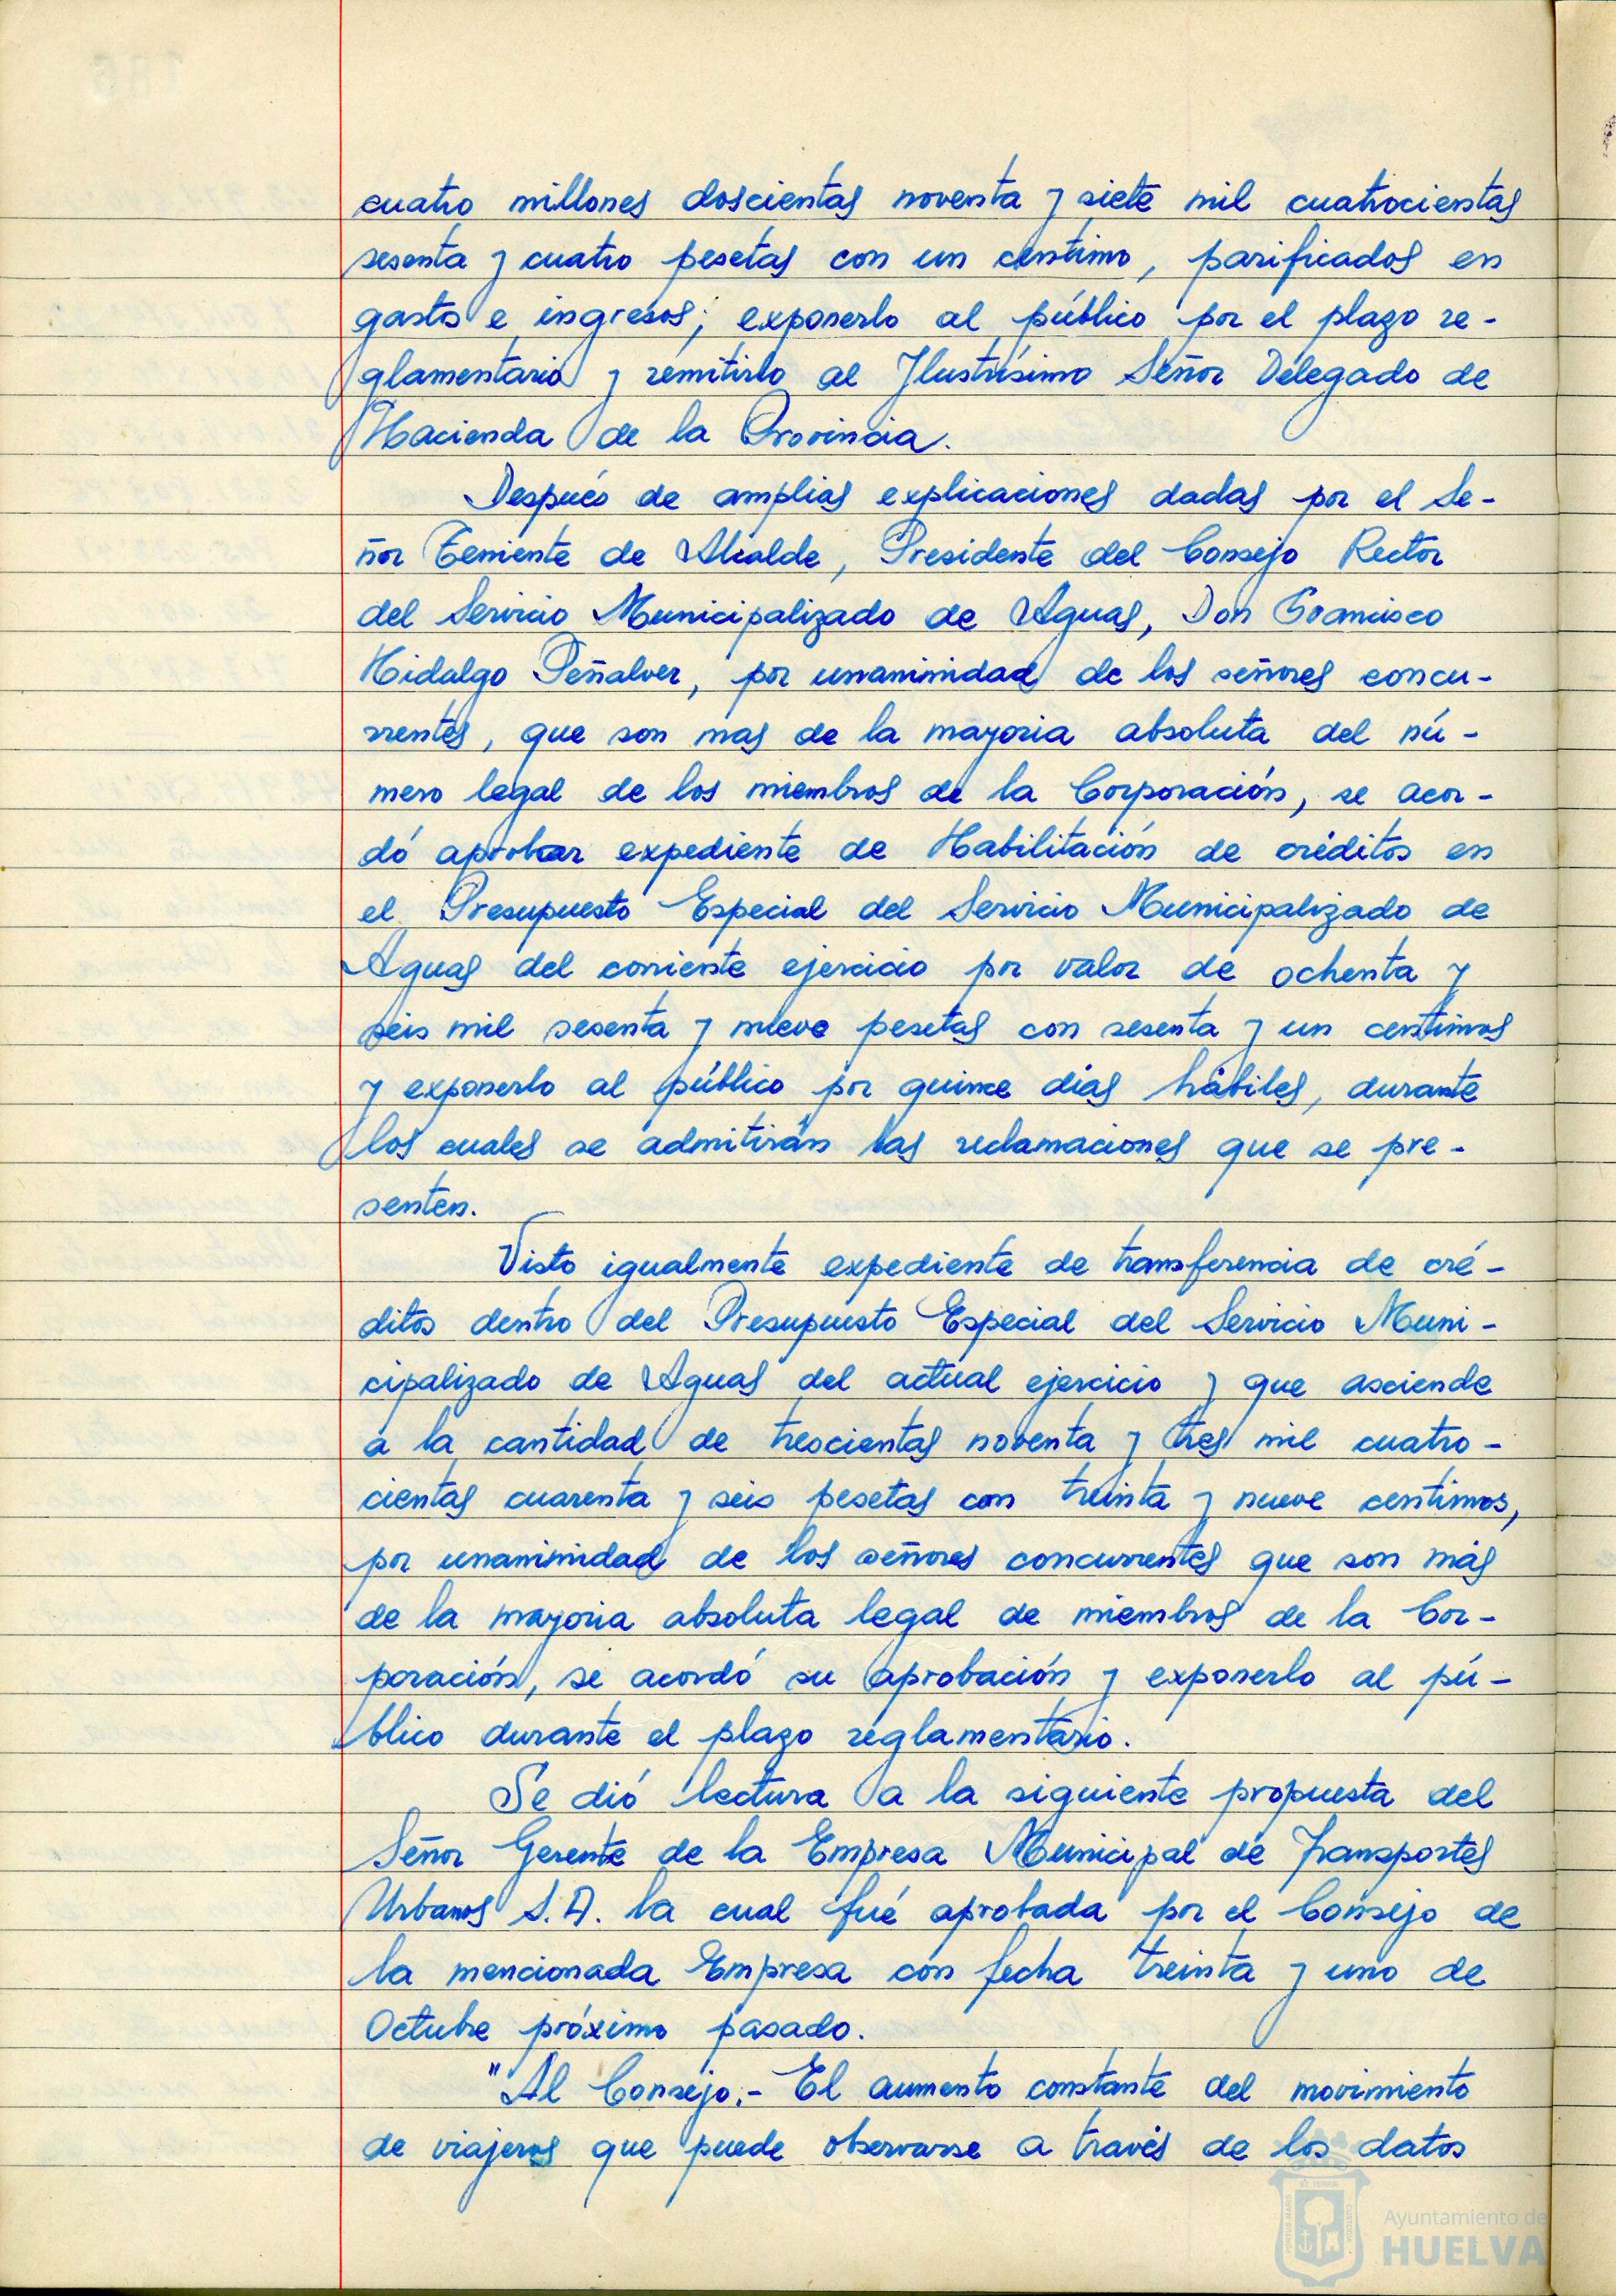 cuatro millones doscientas noventa y siete mil cuatrocientas
sesenta y cuatro pesetas con un centimo, parificados en
gastos e ingresos; exponerlo al público por el plazo re-
glamentario y remitirlo al Ilustrísimo Señor Delegado de
Hacienda de la Provincia.
Después de amplias explicaciones dadas por el Se-
ñor Teniente de Alcalde, Presidente del Consejo Rector
del Servicio Municipalizado de Aguas, Don Francisco
Hidalgo Peñalver, por unanimidad de los señores concu-
rrentes, que son mas de la mayoria absoluta del nú-
mero legal de los miembros de la Corporación, se acor-
dó aprobar expediente de Habilitación de créditos en
el Presupuesto Especial del Servicio Municipalizado de
Aguas del corriente ejercicio por valor de ochenta y
seis mil sesenta y nueve pesetas con sesenta y un centimos
y exponerlo al público por quince dias hábiles, durante
los cuales se admitirán las reclamaciones que se pre-
senten.
Visto igualmente expediente de transferencia de cré-
ditos dentro del Presupuesto Especial del Servicio Muni-
cipalizado de Aguas del actual ejercicio y que asciende
a la cantidad de trescientas noventa y tres mil cuatro-
cientas cuarenta y seis pesetas con treinta y nueve centimos,
por unanimidad de los señores concurrentes que son más
de la mayoria absoluta legal de miembros de la Cor-
poración, se acordó su aprobación y exponerlo al pú-
blico durante el plazo reglamentario.
Se dió lectura a la siguiente propuesta del
Señor Gerente de la Empresa Municipal de Transportes
Urbanos S.A. la cual fué aprobada por el Consejo de
la mencionada Empresa con fecha treinta y uno de
Octubre próximo pasado.
"Al Consejo.- El aumento constante del movimiento
de viajeros que puede observarse a través de los datos
Ayuntamiento de
HUELVA